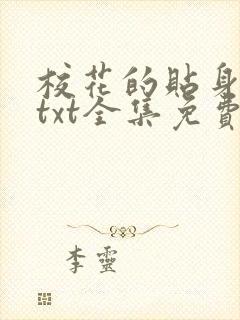 校花的貼身
txt全集免費
李靈